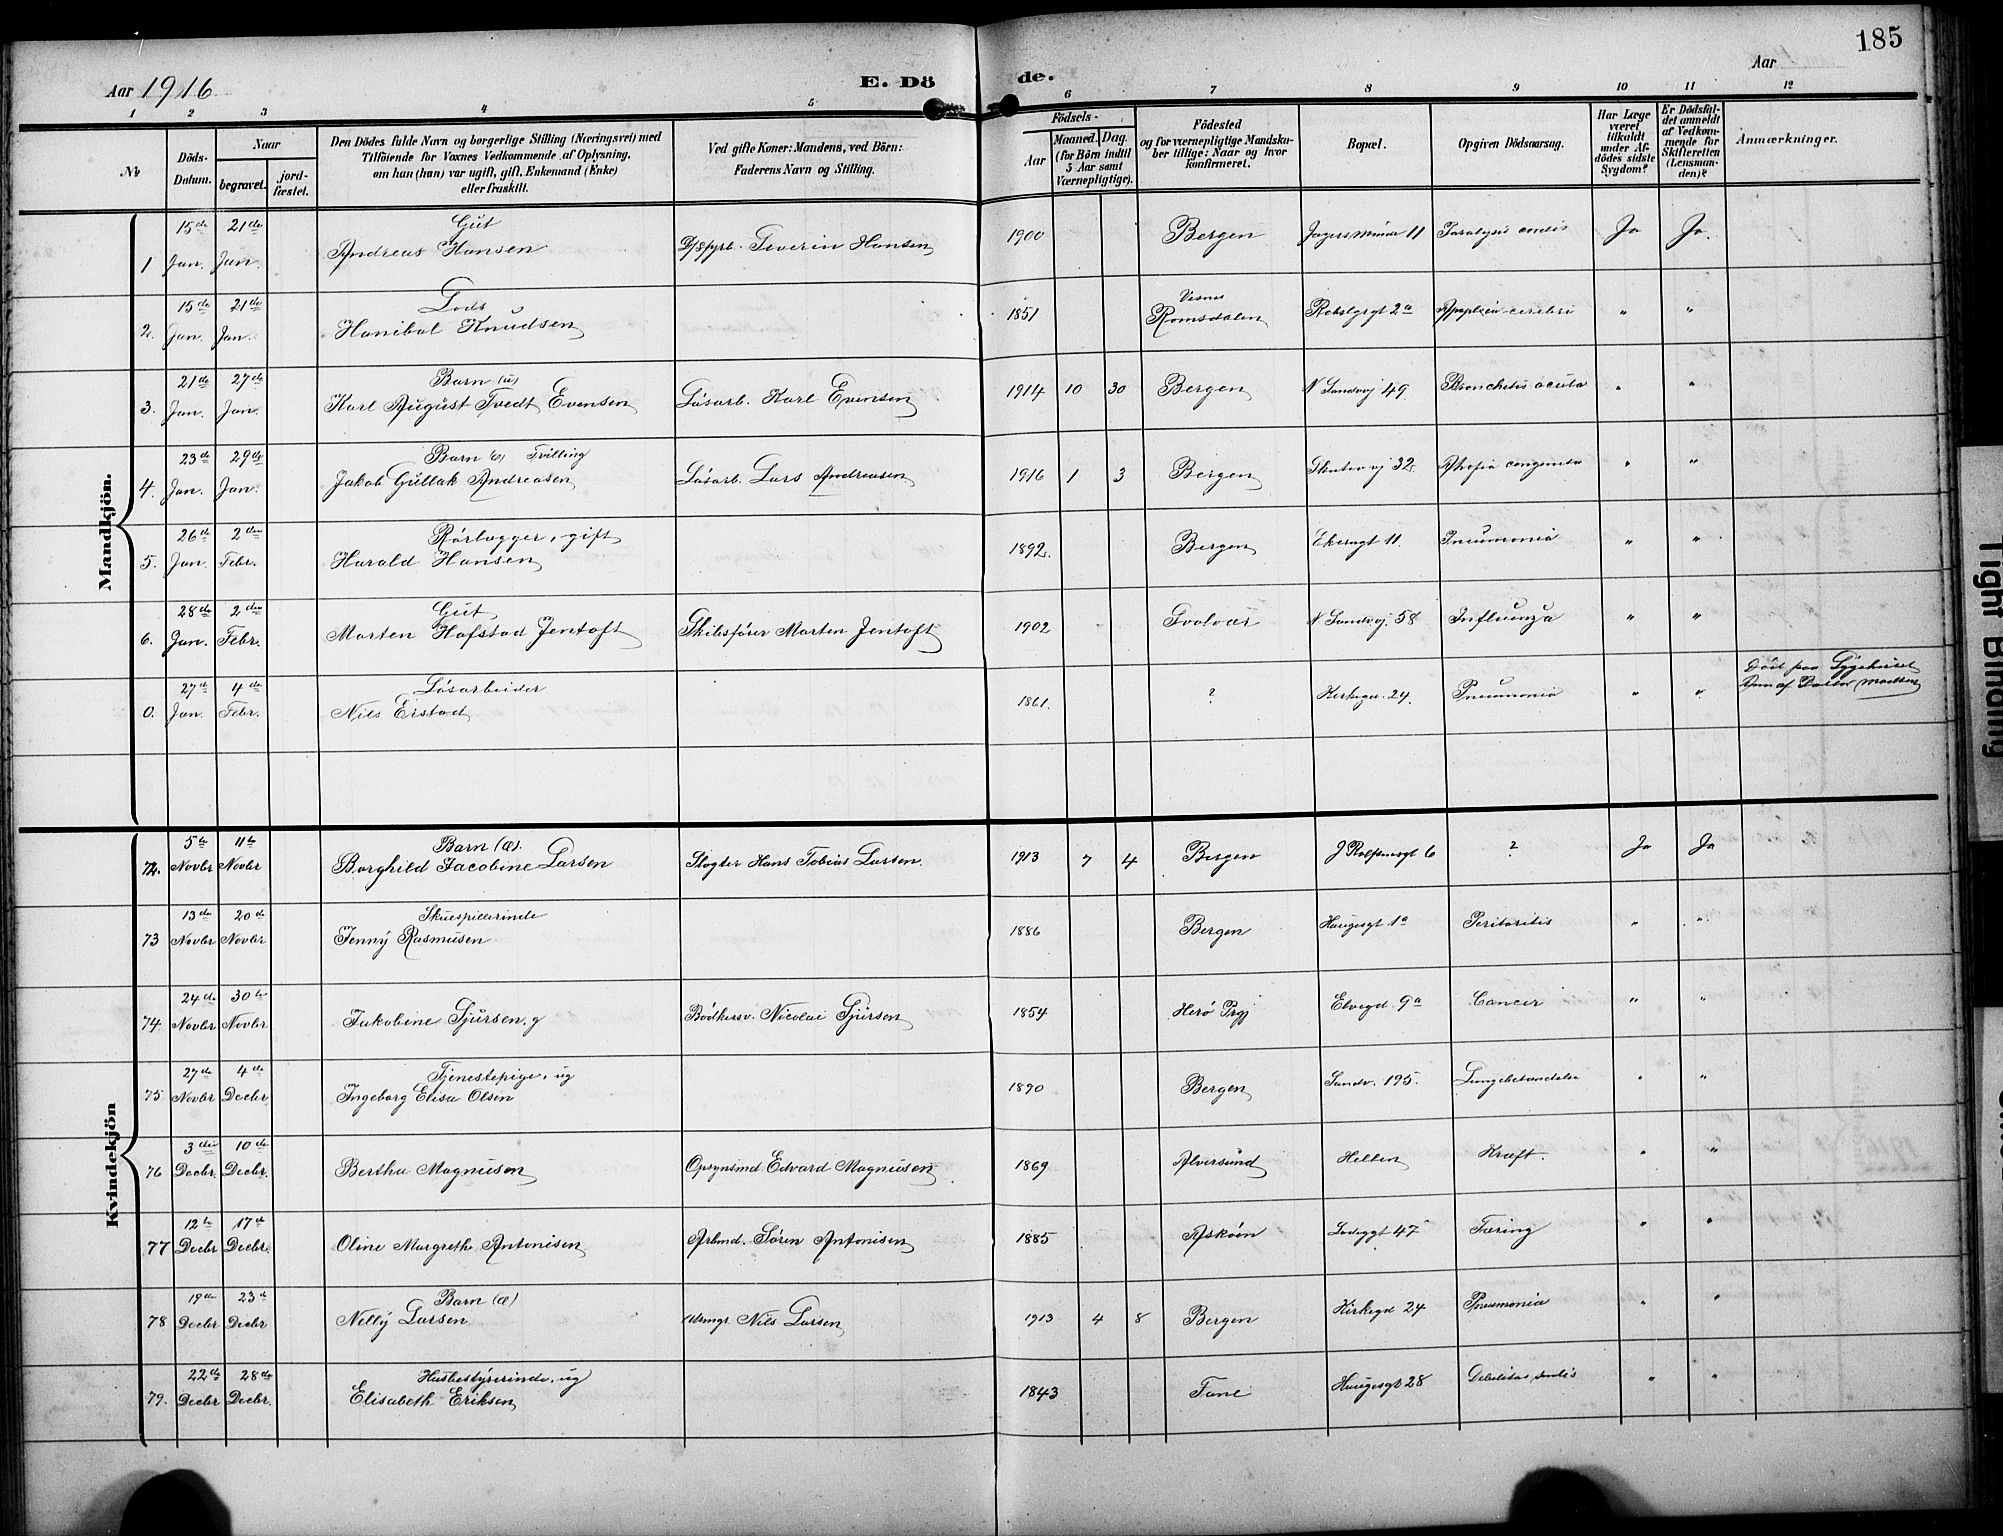 185
Aar 1916
E. Dö
de.
Aar
1 2 3 4 5 6 7 8 9 10 11 12
№
Döds-Datum.
Naar
begravet.
jordfæstet.
Den Dödes fulde Navn og borgerlige Stilling (Næringsvei) med
Tilföiende for Voxnes Vedkommende af Oplysning,
om han (hun) var ugift, gift, Enkemand (Enke)
eller fraskilt.
Ved gifte Koner: Mandens, ved Börn:
Faderens Navn og Stilling.
Födsels-
Aar
Maaned. Dag.
(for Börn indtil
5 Aar samt
Værnepligtige).
Födested
og for værnepligtige Mandskaber tillige: Naar og hvor
konfirmeret.
Bopæl.
Opgiven Dödsaarsag.
Har Læge
været
tilkaldt
under Afdödes sidste
Sygdom?
Er Dödsfaldet anmeldt
af Vedkommende for
Skifteretten
(Lensmanden)?
Anmærkninger.
Mandkjön.
15de 21de Gut
1 Jan. Jan. Andreas Hansen Severin Hansen 1900 Bergen 11 Paralysis cordis Ja Ja.
15de 21de Lods
2. Jan. Jan. Hanibal Knudsen 1851 Romsdalen 2a Apoplexia cerebri " "
21de 27de Barn (u)
3. Jan. Jan. Karl August Tvedt Evensen Løsarb. Karl Evensen 1914 10 30 Bergen N Sandvj 49. Bronchitis acuta " "
23de 29de Barn Tvilling
4. Jan. Jan. Jakob Gullak Andreasen Løsarb. Lars Andreasen 1916 1 3 Bergen Skutevvj 32. congenita " "
26de 2den Rørlægger, gift
5. Jan. Febr. Harald Hansen 1892. Bergen Ekerngt 11. Pneumonia " "
28de 2den Gut
6. Jan. Febr. Morten Hofstad Jentoft Skibsfører Morten Jentoft 1902 Svolvær N Sandvj. 58 Influenza " "
27de 4de Løsarbeider
0. Jan. Febr. Nils Eistad 1861. ? Kirkegd. 24. Pneumonia " " Død paa Sygehuset
Kvindekjön
5te 11te Barn (æ).
72. Novbr Novbr Borghild Jacobine Larsen Slagter Hans Tobias Larsen. 1913 7 4 Bergen 6 ? Ja Ja
13de 20de Skuespillerinde
73 Novbr Novbr Jenny Rasmusen 1886 Bergen Haugesgt 1a " "
24de 30te
74. Novbr Novbr Jakobine Sjursen. g Bødkersv. Nicolai Sjursen 1854 Herø Prgj Elvegd. 9a Cancer " "
27de 4de Tjenestepige, ug
75. Novbr Decbr. Ingeborg Elisa Olsen 1890 Bergen Sandv. 195. Lungebetændelse " "
3die 10de
76 Decbr. Decbr. Bertha Magnusen Opsynsmd Edvard Magnusen 1869 Alversund Hellen Kræft. " "
12te 17de
77 Decbr Decbr. Oline Margrethe Antonisen Arbmd. Søren Antonisen 1885 Askøen Ladeggt 47 Tæring " "
19de 23de Barn (æ)
78 Decbr Decbr Nelly Larsen Nils Larsen 1913 4 8 Bergen Kirkegd 24 Pneumonia " "
22de 28de Husbestyrerinde, ug
79. Decbr Decbr. Elisabeth Eriksen 1843 Fane Haugesgt 28 Debilitas senilis " "
Tight Binding